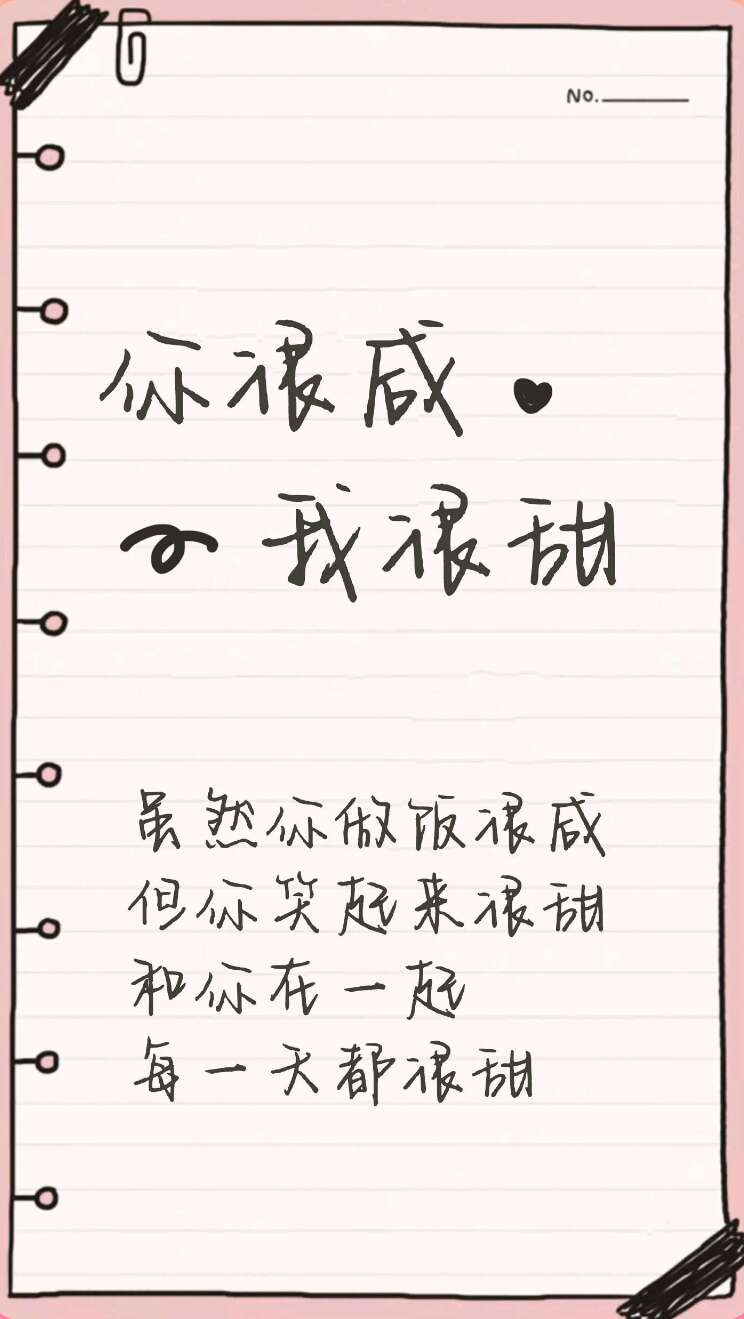 No.
你很咸
我很甜
虽然你做饭很咸
但你笑起来很甜
和你在一起
每一天都很甜